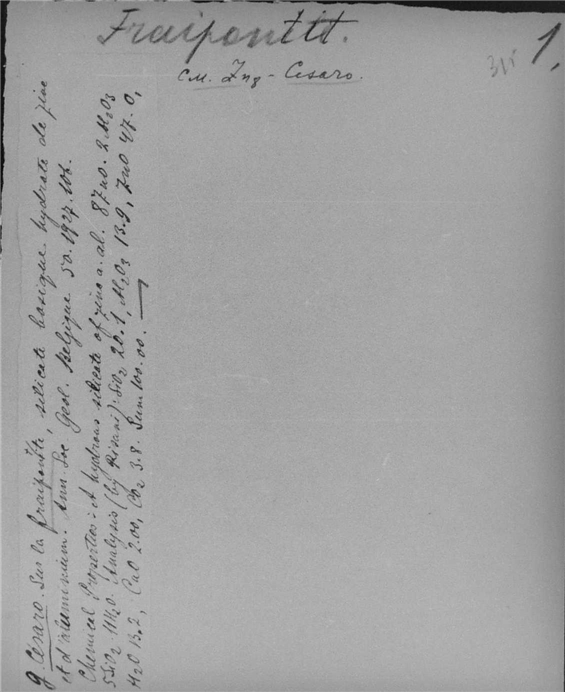 Fraipontit.
315
1,
см. Zng - Cesaro.
G. Cesaro. Sur la fraipontite, silicate basique hydraté de zinc
et d'aluminium. Ann. Soc Geol. Belgique. 50. 1927. 106.
Chemical Properties: A hydrous silicate of zinc a. al. 8ZnO. 2Al2O3
5SiO2 11H2O. Analysis (by Pisani): SiO2 20.1, Al2O3 13.9, ZnO 47.0,
H2O 13.2, CaO 2.00, CO2 3.8. Sum 100.00.